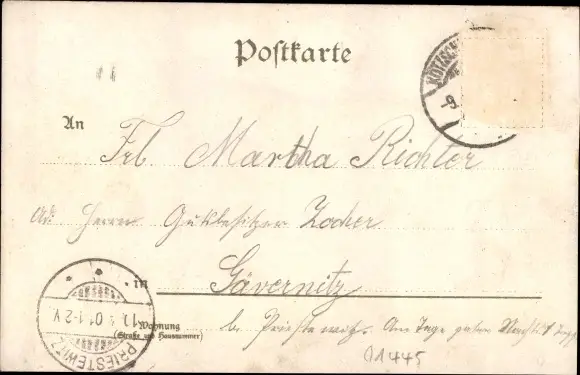 Postkarte
An
Frl. Martha Richter
Ad. Herrn Gutsbesitzer Zocher
in Gävernitz
Wohnung
(Straße und Hausnummer)
b. Priestewitz. Am Tage
PRIESTEWITZ
01 1-2 V.
01445